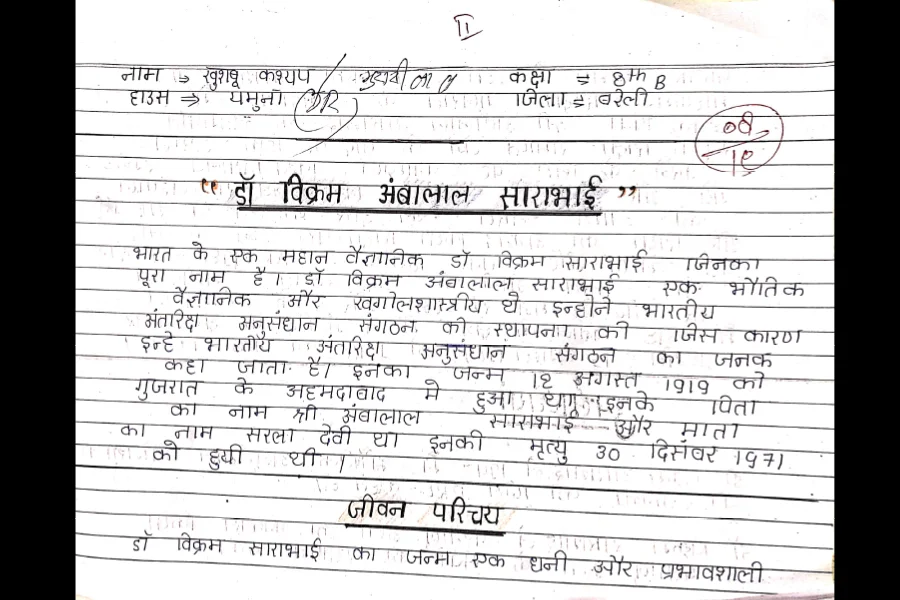 II
नाम ⇒ खुशबू कश्यप कक्षा ⇒ 8th B
हाउस ⇒ यमुना जिला ⇒ बरेली
"डॉ विक्रम अंबालाल साराभाई"
भारत के एक महान वैज्ञानिक डॉ विक्रम साराभाई जिनका
पूरा नाम है। डॉ विक्रम अंबालाल साराभाई एक भौतिक
वैज्ञानिक और खगोलशास्त्रीय थे इन्होने भारतीय
अंतरिक्ष अनुसंधान संगठन की स्थापना की जिस कारण
इन्हे भारतीय अंतरिक्ष अनुसंधान संगठन का जनक
कहा जाता है। इनका जन्म 12 अगस्त 1919 को
गुजरात के अहमदाबाद मे हुआ था। इनके पिता
का नाम श्री अंबालाल साराभाई और माता
का नाम सरला देवी था इनकी मृत्यु 30 दिसंबर 1971
को हुयी थी।
जीवन परिचय
डॉ विक्रम साराभाई का जन्म एक धनी और प्रभावशाली